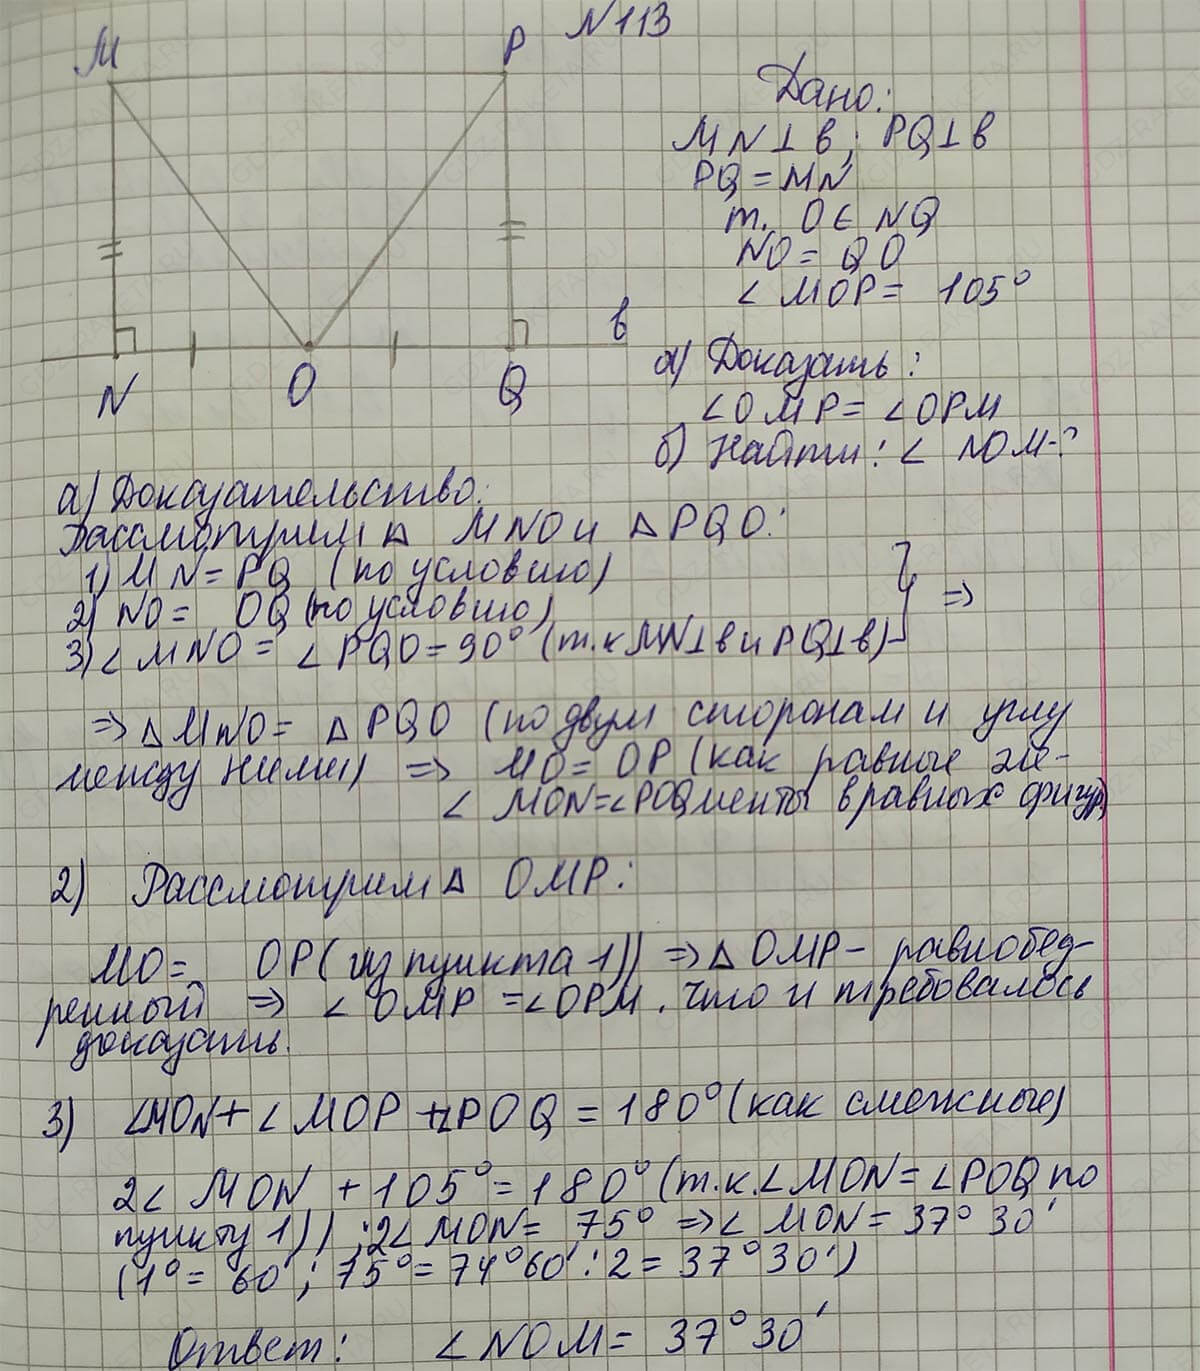 N113
M
P
Дано:
MN⊥в; PQ⊥в
PQ=MN
т. O∈ NQ
NO= QO
∠ MOP= 105°
в
N
O
Q
а) Доказать:
∠OMP= ∠OPM
б) Найти: ∠ NOM-?
а) Доказательство:
Рассмотрим △ MNO и △ PQO:
1) MN=PQ (по условию)
2) NO= OQ (по условию)
3) ∠ MNO = ∠ PQO=90° (т.к MN⊥в и PQ⊥в)
=>
=> △MNO= △ PQO (по двум сторонам и углу
между ними) => MO= OP (как равные эле-
∠ MON=∠POQ менты в равных фигур)
2) Рассмотрим △ OMP:
MO= OP (из пункта 1)) => △ OMP- равнобед-
ренный => ∠ OMP =∠OPM. Что и требовалось
доказать.
3) ∠MON+∠ MOP +∠POQ = 180° (как смежные)
2∠ MON +105°=180° (т.к.∠MON=∠POQ по
пункту 1)) ;2∠MON= 75° => ∠ MON= 37° 30'
(1°= 60'; 75°=74°60':2= 37°30')
Ответ: ∠NOM= 37°30'